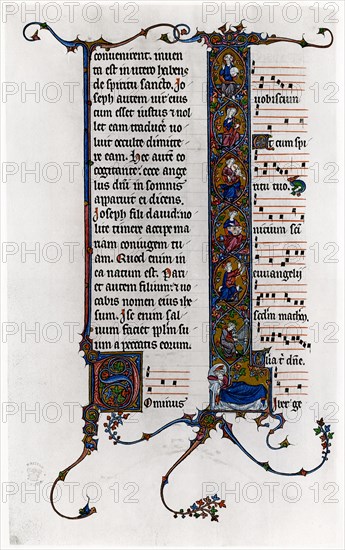 conuenirent. inuen
ta est in utero habens
de spiritu sancto. Jo
seph autem uir eius
cum esset iustus ⁊ nol
let eam traducẽ uo
luit occulte dimitte
re eam. Hec autẽ eo
cogitante. ecce ange
lus dñi in somnis
apparuit ei dicens.
Joseph fili dauid. no
li timere accipe ma
riam coniugem tu
am. Quod enim in
ea natum est. Pari
et autem filium: ⁊ uo
cabis nomen eius ihe
sum. Ipse enim sal
uum faciet pplm su
um a peccatis eorum.
Dominus
uobiscum
Et cum spi
ritu tuo.
Inicium sci
euuangelij
scdm mathm
Glia t̃ dñe.
liber ge
PHOTO 12